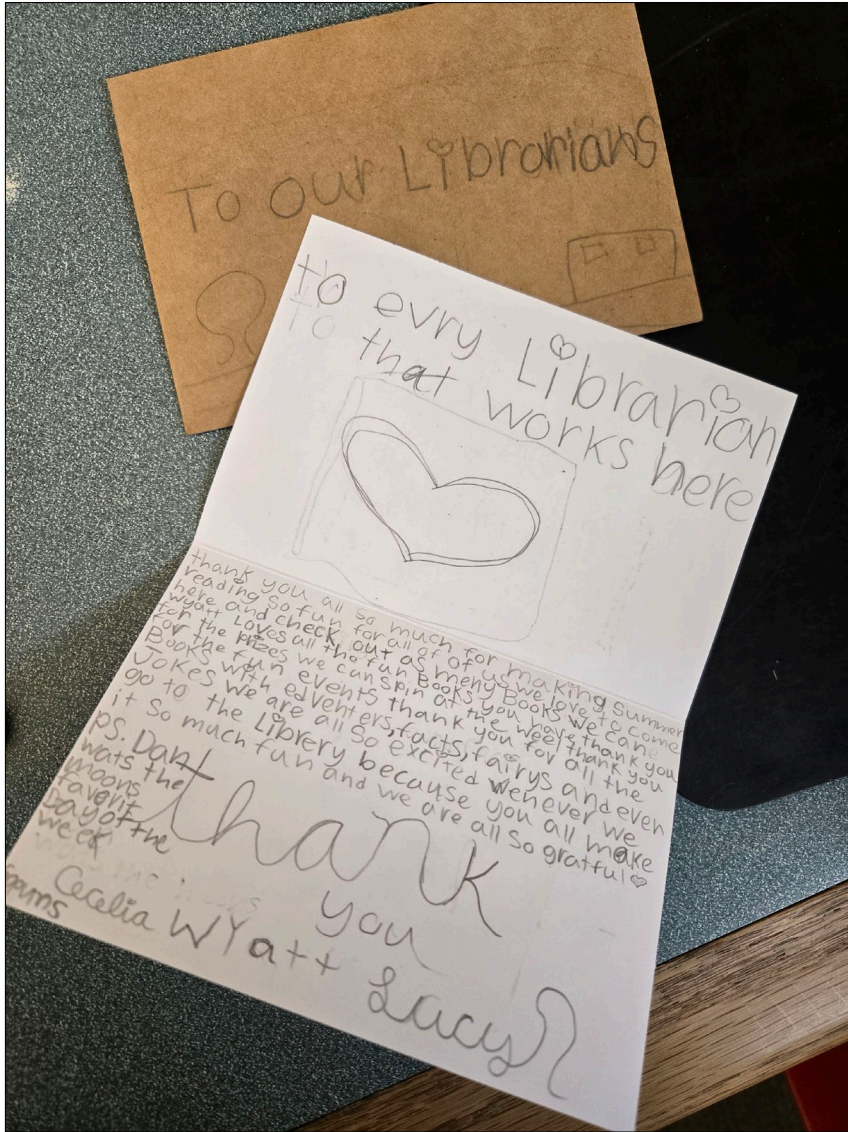 To our Librarians
to evry Librarian
To
that works here
thank you all so much for making Summer
reading so fun for all of of us we love to come
here and check out as meny Books we cane
Wyatt Loves all the fun Books you have thank you
for the prizes we can spin at the weel thank you
for the fun events thank you for all the
Books with edventers, facts, fairys and even
Jokes we are all so excited wenever we
go to the Librery because you all make
it so much fun and we are all so gratful
ps. Dan
wats the
moons
favorit
Day of the
week
thank
you
Cecelia Wyatt Lacy